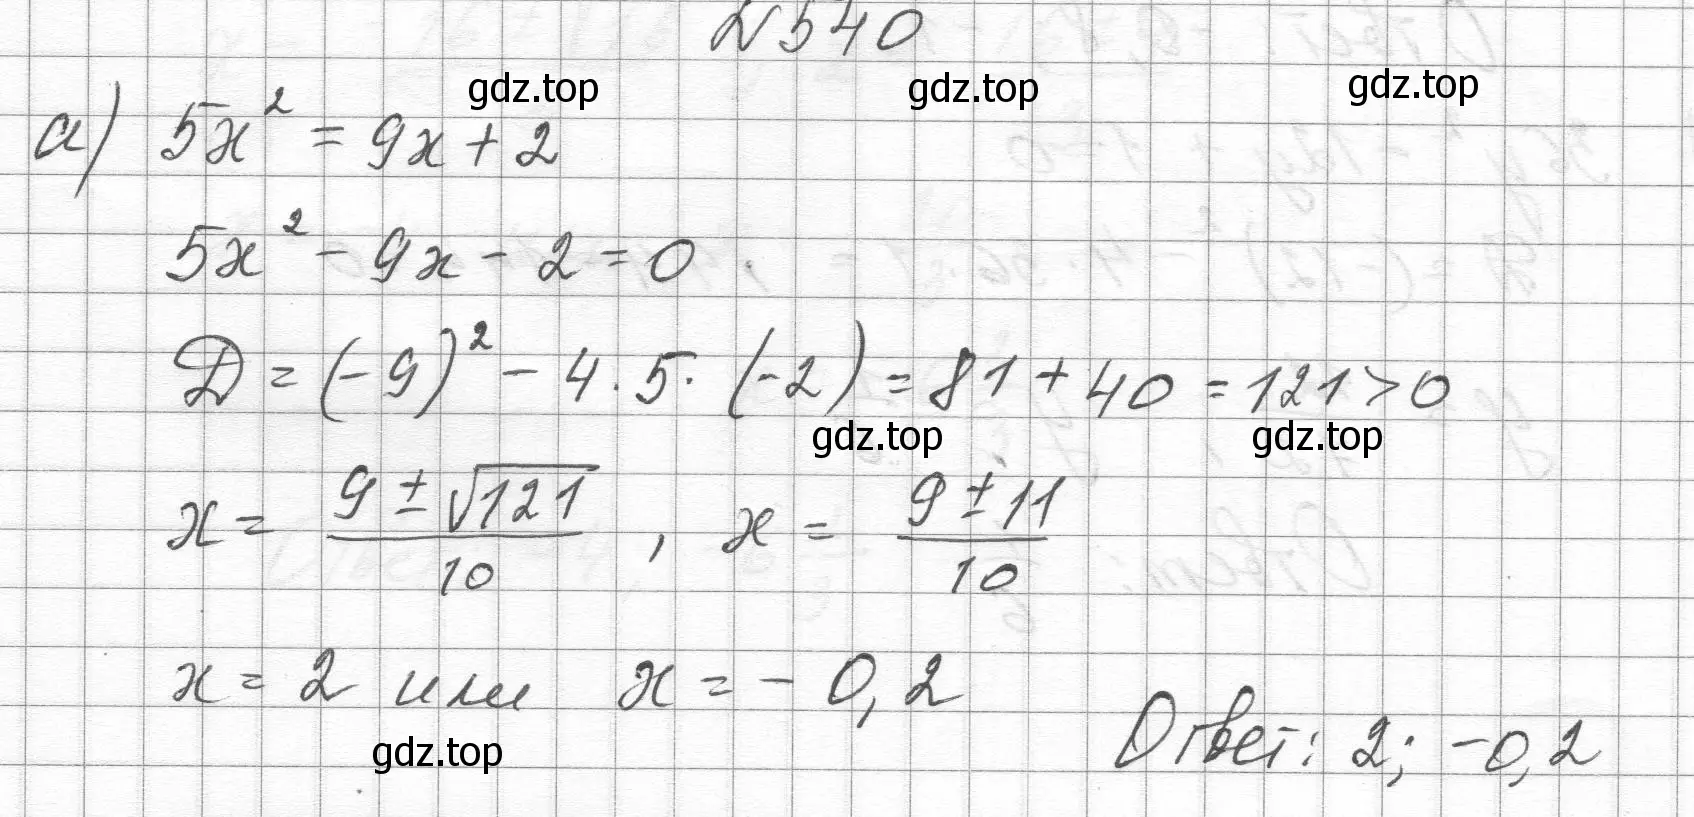 №540
gdz.top gdz.top gdz.top
а) 5x² = 9x + 2
5x² - 9x - 2 = 0
D = (-9)² - 4 · 5 · (-2) = 81 + 40 = 121 > 0
gdz.top gdz.top
x = (9 ± √121)/10 , x = (9 ± 11)/10
x = 2 или x = - 0,2
Ответ: 2; -0,2
gdz.top